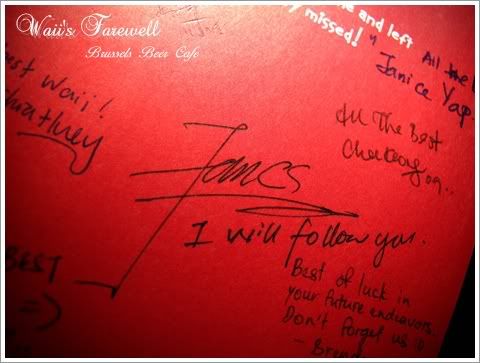 Waii's Farewell
Brussels Beer Cafe
and left
missed!
All the
Janice Yap
est Waii!
All The Best
James
I will follow you.
BEST
=)
Best of luck in
your future endeavors.
Don't forget us :)